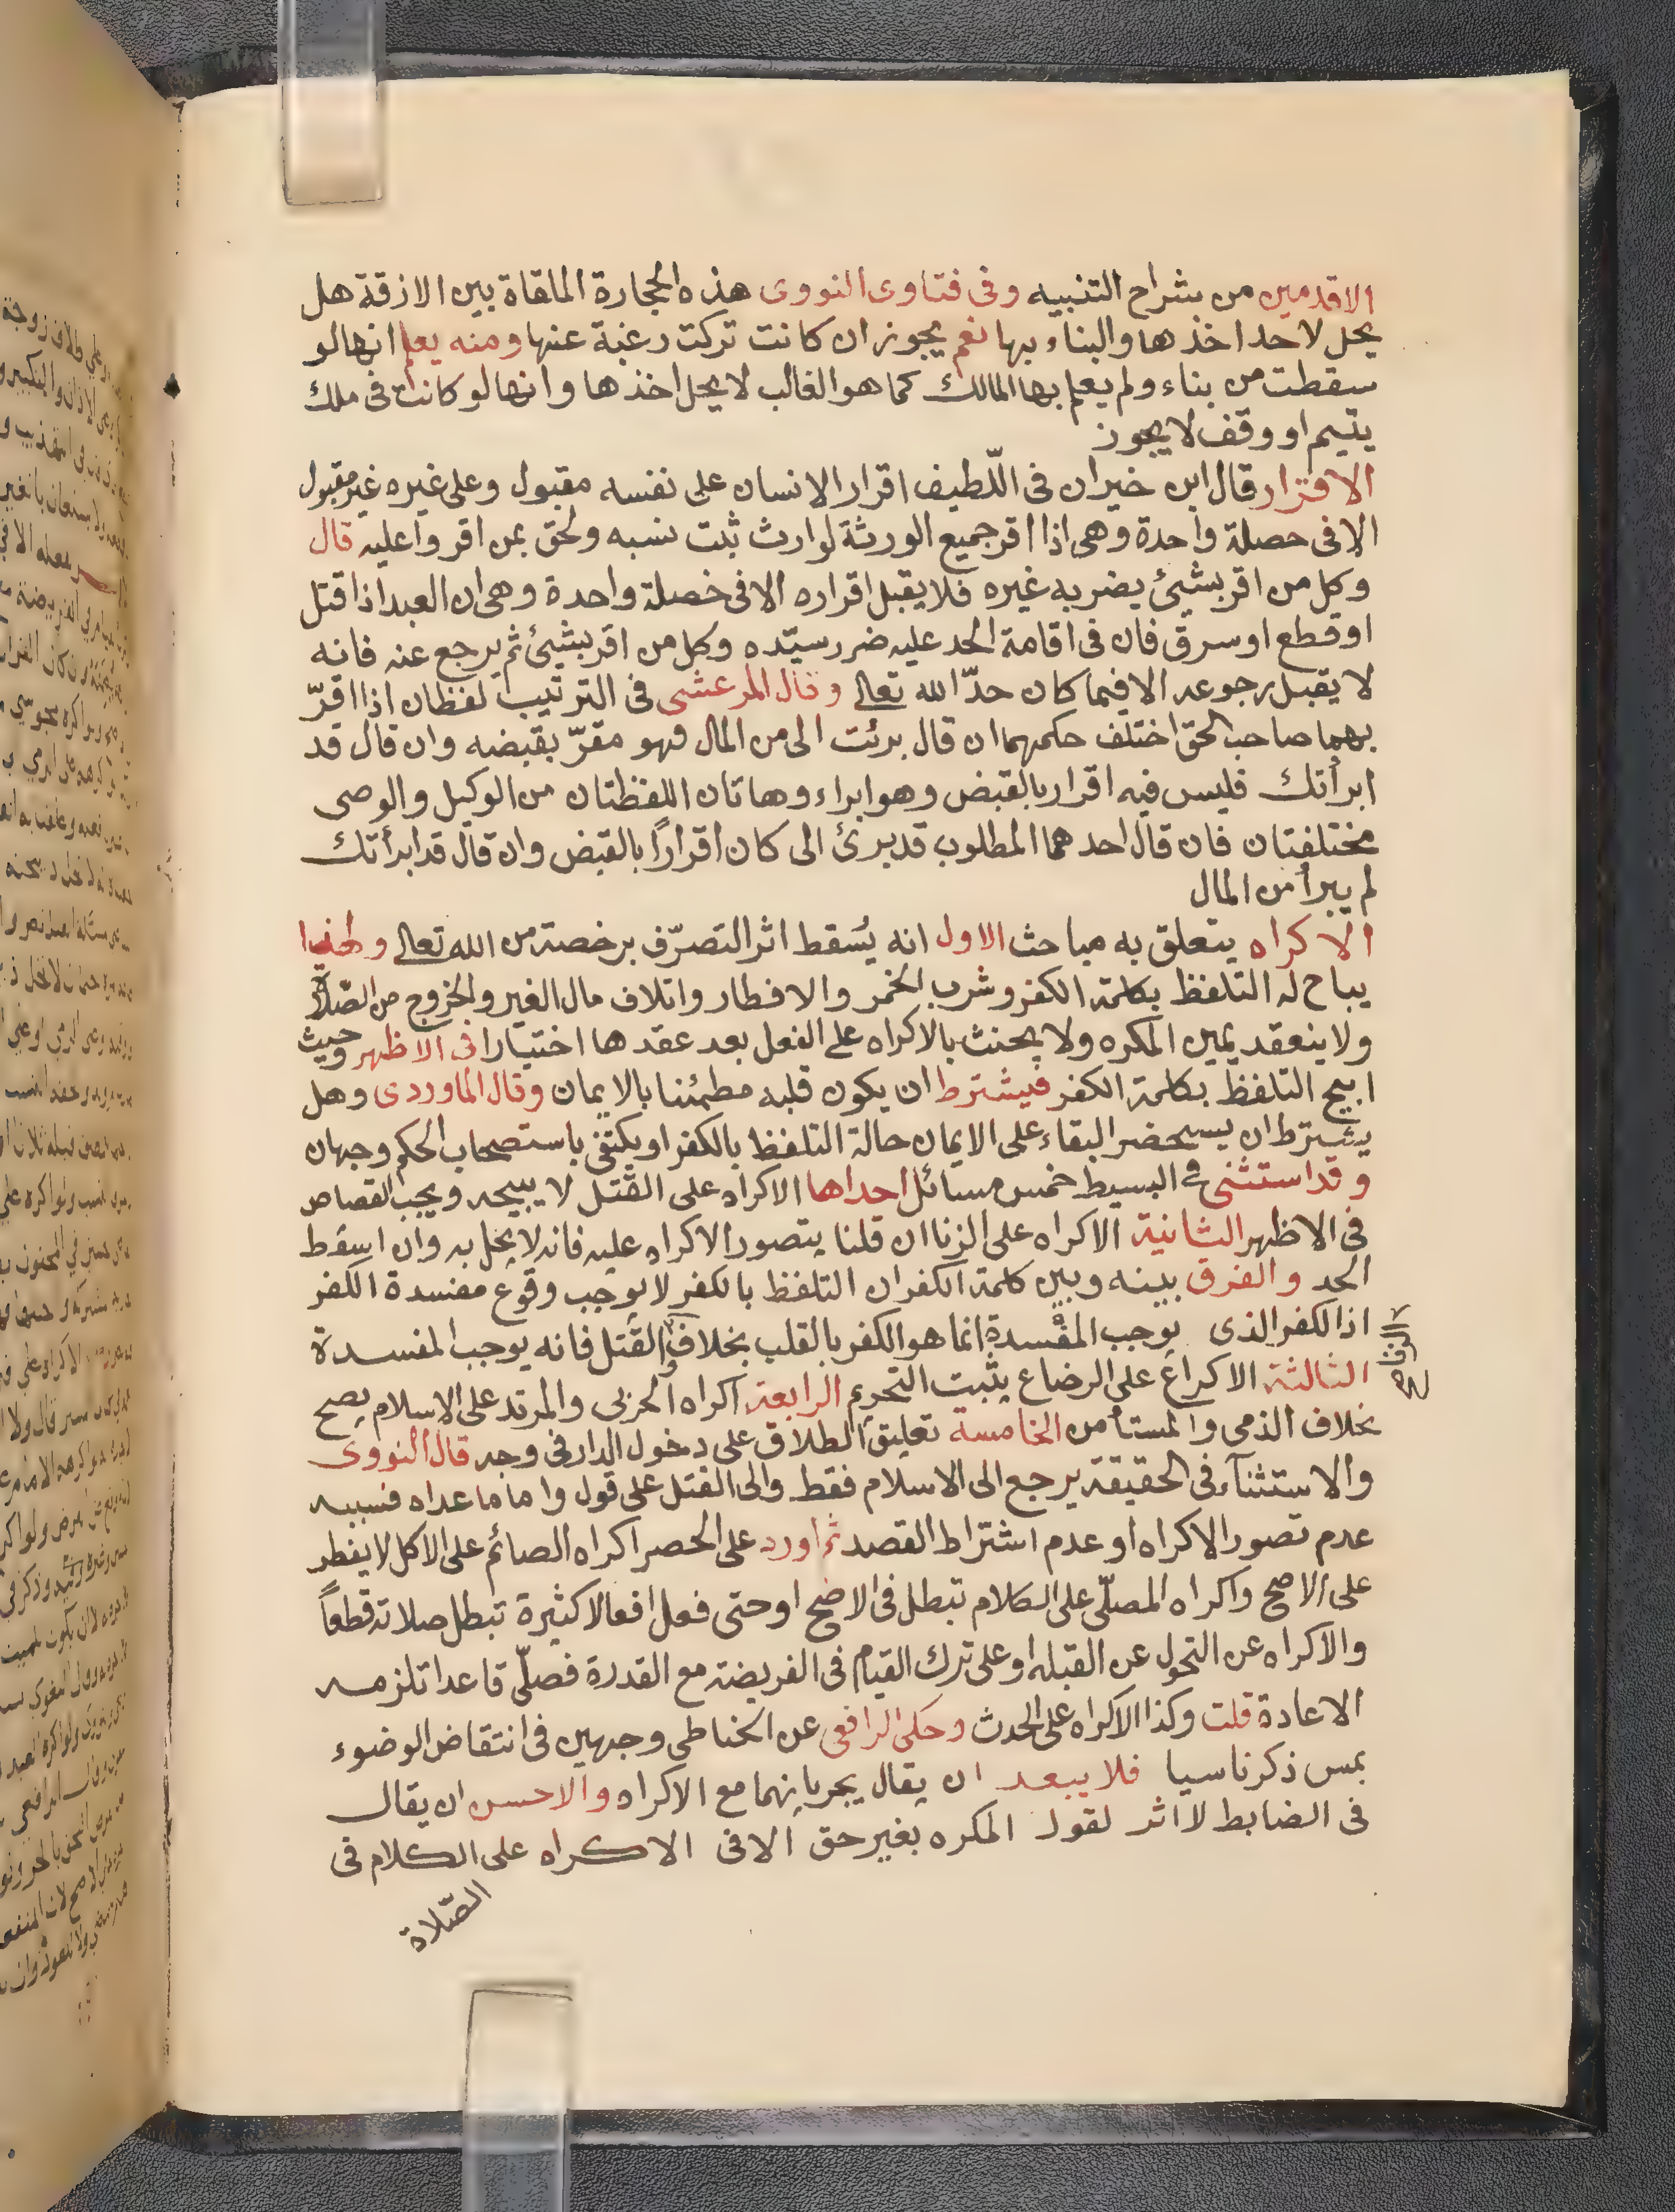 الاقدمين من شراح التنبيه وفى فتاوى النووى هذه الحجارة الملقاة بين الازقة هل
يحل لاحد اخذها والبناء بها نعم يجوز ان كانت تركت رغبة عنها ومنه يعلم انها لو
سقطت من بناء ولم يعلم بها المالك كما هو الغالب لا يحل اخذها وانها لو كانت فى ملك
يتيم او وقف لا يجوز
الاقرار قال ابن خيران فى اللّطيف اقرار الانسان على نفسه مقبول وعلى غيره غير مقبول
الا فى حصلة واحدة وهى اذا اقر جميع الورثة لوارث ثبت نسبه ولحق بمن اقروا عليه قال
وكل من اقر بشيئ يضر به غيره فلا يقبل اقراره الا فى خصلة واحدة وهى ان العبد اذا قتل
او قطع او سرق فان فى اقامة الحد عليه ضرر سيّده وكل من اقر بشيئ ثم يرجع عنه فانه
لا يقبل رجوعه الا فيما كان حدّا لله تعالى وقال المرعشى فى الترتيب لفظان اذا اقرّ
بهما صاحب الحق اختلف حكمهما ان قال برئت الى من المال فهو مقرّ بقبضه وان قال قد
ابرأتك فليس فيه اقرار بالقبض وهو ابراء وهاتان اللفظتان من الوكيل والوصى
مختلفتان فان قال احدهما المطلوب قد برئ الى كان اقرارًا بالقبض وان قال قد ابرأتك
لم يبرأ من المال
الاكراه يتعلق به مباحث الاول انه يُسقط اثر التصرّف برخصة من الله تعالى ولهذا
يباح له التلفظ بكلمة الكفر وشرب الخمر والافطار واتلاف مال الغير والخروج من الصّلاة
ولا ينعقد يمين المكره ولا يحنث بالاكراه على الفعل بعد عقدها اختيارا فى الاظهر وحيث
ابيح التلفظ بكلمة الكفر فيشترط ان يكون قلبه مطمئنا بالايمان وقال الماوردى وهل
يشترط ان يستحضر البقاء على الايمان حالة التلفظ بالكفر او يكتفى باستصحاب الحكم وجهان
وقد استثنى فى البسيط خمس مسائل احداها الاكراه على القتل لا يبيحه ويجب القصاص
فى الاظهر الثانية الاكراه على الزنا ان قلنا يتصور الاكراه عليه فانه لا يحل به وان اسقط
الحد والفرق بينه وبين كلمة الكفر ان التلفظ بالكفر لا يوجب وقوع مفسدة الكفر
اذ الكفر الذى يوجب المفسدة انما هو الكفر بالقلب بخلاف القتل فانه يوجب المفسدة
والزنا صح
الثالثة الاكراع على الرضاع يثبت التحرم الرابعة اكراه الحربى والمرتد على الاسلام يصح
بخلاف الذمى والمستأمن الخامسة تعليق الطلاق على دخول الدار فى وجه قال النووى
والاستثنآء فى الحقيقة يرجع الى الاسلام فقط والى القتل على قول واما ما عداه فسببه
عدم تصور الاكراه او عدم اشتراط القصد ثم اورد على الحصر اكراه الصائم على الاكل لا يفطر
على الاصح واكراه المصلّى على الكلام تبطل فى الاصح او حتى فعل افعالا كثيرة تبطل صلاته قطعاً
والاكراه عن التحول عن القبلة او على ترك القيام فى الفريضة مع القدرة فصلّى قاعدا تلزمه
الاعادة قلت وكذا الاكراه على الحدث وحكى الرافعى عن الحناطى وجهين فى انتقاض الوضوء
بمس ذكر ناسيا فلا يبعد ان يقال يجريانهما مع الاكراه والاحسن ان يقال
فى الضابط لا اثر لقول المكره بغير حق الا فى الاكراه على الكلام فى
الصّلاة